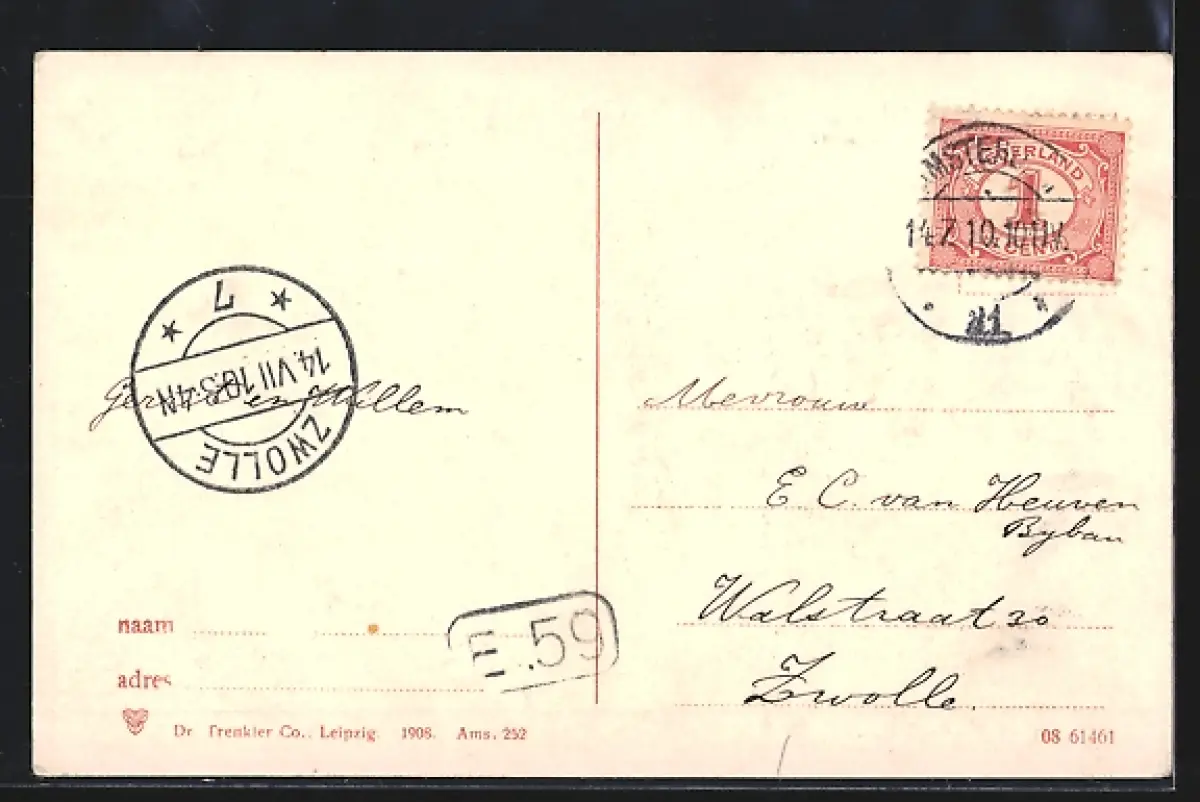 NEDERLAND
1
CENT
14.7.10.10-11V.
7
14.VII 10.3-4N
ZWOLLE
en Willem
Mevrouw
E. C. van Heuven
Byban
Walstraat 30
Zwolle.
E.59
naam
adres
Dr Trenkler Co., Leipzig. 1908. Ams. 252
08 61461